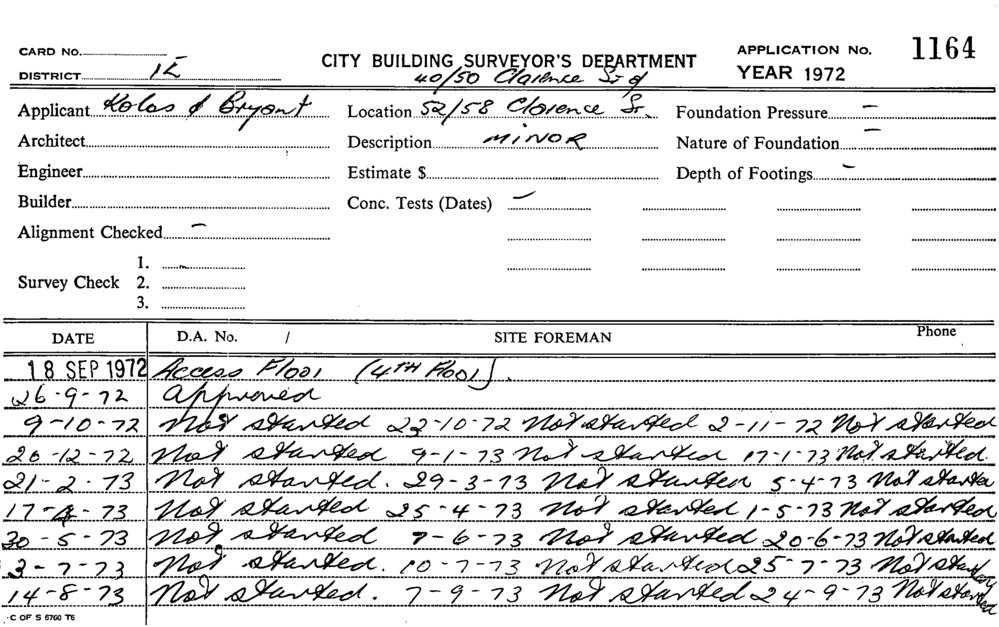 CARD No.
DISTRICT 1E
CITY BUILDING SURVEYOR'S DEPARTMENT
APPLICATION No. 1164
YEAR 1972
40/50 Clarence St &
Applicant Kolos & Bryant
Location 52/58 Clarence St.
Foundation Pressure –
Architect
Description MINOR
Nature of Foundation –
Engineer
Estimate $
Depth of Footings –
Builder
Conc. Tests (Dates) –
Alignment Checked –
Survey Check 1. –
2.
3.
DATE D.A. No. / SITE FOREMAN Phone
18 SEP 1972 Access Floor (4TH Floor).
26-9-72 Approved
9-10-72 Not started 23-10-72 Not started 2-11-72 Not started
20-12-72 Not started 9-1-73 Not started 17-1-73 Not started.
21-2-73 Not started. 29-3-73 Not started 5-4-73 Not started
17-4-73 Not started 25-4-73 Not started 1-5-73 Not started
30-5-73 Not started 7-6-73 Not started 20-6-73 Not started
3-7-73 Not started. 10-7-73 Not started 25-7-73 Not started
14-8-73 Not started. 7-9-73 Not started 24-9-73 Not started
C OF S 6760 T6